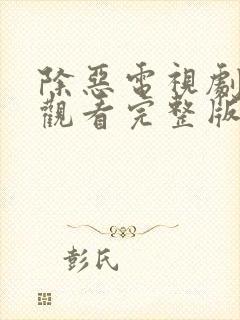 除惡電視劇
觀看完整版
彭氏